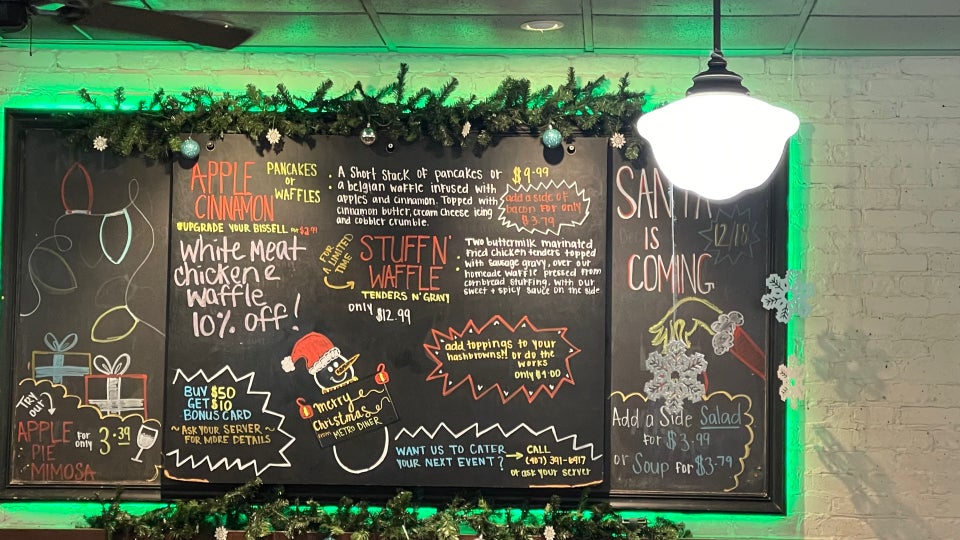 TRY
OUR
APPLE
PIE
MIMOSA
For
only
3.39
APPLE
CINNAMON
PANCAKES
or
WAFFLES
A Short Stack of pancakes or
a belgian waffle infused with
apples and cinnamon. Topped with
cinnamon butter, cream cheese icing
and cobbler crumble.
$9.99
add a side of
bacon For only
$3.79
UPGRADE YOUR BISSELL
White meat
chicken &
waffle
10% off!
FOR A LIMITED
TIME
STUFFN'
WAFFLE
TENDERS N' GRAVY
only $12.99
Two buttermilk marinated
Fried chicken tenders topped
with Sausage gravy, over our
homeade waffle pressed from
cornbread stuffing, with our
sweet + spicy sauce on the side
add toppings to your
hashbrowns!! or do the
works
only $1.00
BUY $50
GET $10
BONUS CARD
~ ASK YOUR SERVER ~
FOR MORE DETAILS
merry
Christmas
From METRO DINER
WANT US TO CATER
YOUR NEXT EVENT?
CALL
(407) 391-6917
or ask your server
SANTA
IS
COMING
12/18
Add a Side Salad
For $3.99
or Soup For $3.79